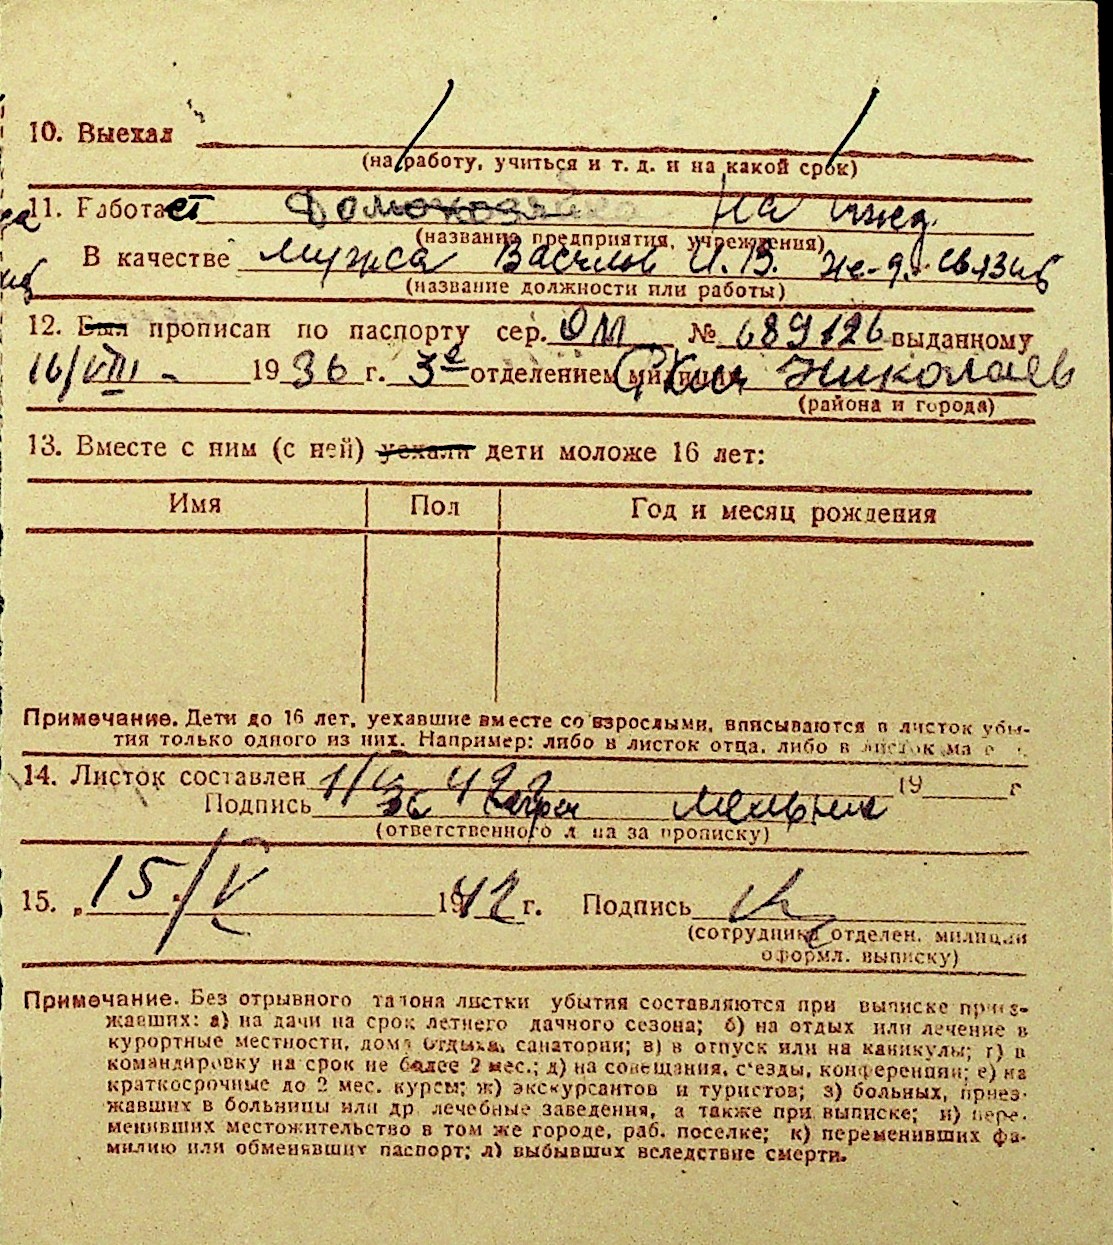 10. Выехал
(на работу, учиться и т. д. и на какой срок)
11. Работает Домохозяйка На ижд.
(название предприятия, учреждения)
В качестве мужа Васил И. В. же-д. связи
(название должности или работы)
12. Был прописан по паспорту сер. ОМ № 689126 выданному
16/VIII 1936 г. 3е отделением милиции Николаев
(района и города)
13. Вместе с ним (с ней) уехали дети моложе 16 лет:
Имя Пол Год и месяц рождения
Примечание. Дети до 16 лет, уехавшие вместе со взрослыми, вписываются в листок убы-
тия только одного из них. Например: либо в листок отца, либо в листок ма
14. Листок составлен 19 г
Подпись Мельник
(ответственного л на за прописку)
15. „15/V 1942 г. Подпись
(сотрудника отделен. милиции
оформл. выписку)
Примечание. Без отрывного талона листки убытия составляются при выписке приез-
жавших: а) на дачи на срок летнего дачного сезона; б) на отдых или лечение в
курортные местности, дома отдыха, санатории; в) в отпуск или на каникулы; г) в
командировку на срок не более 2 мес.; д) на совещания, с'езды, конференции; е) на
краткосрочные до 2 мес. курсы; ж) экскурсантов и туристов; з) больных, приез-
жавших в больницы или др. лечебные заведения, а также при выписке; и) пере-
менивших местожительство в том же городе, раб. поселке; к) переменивших фа-
милию или обменявших паспорт; л) выбывших вследствие смерти.